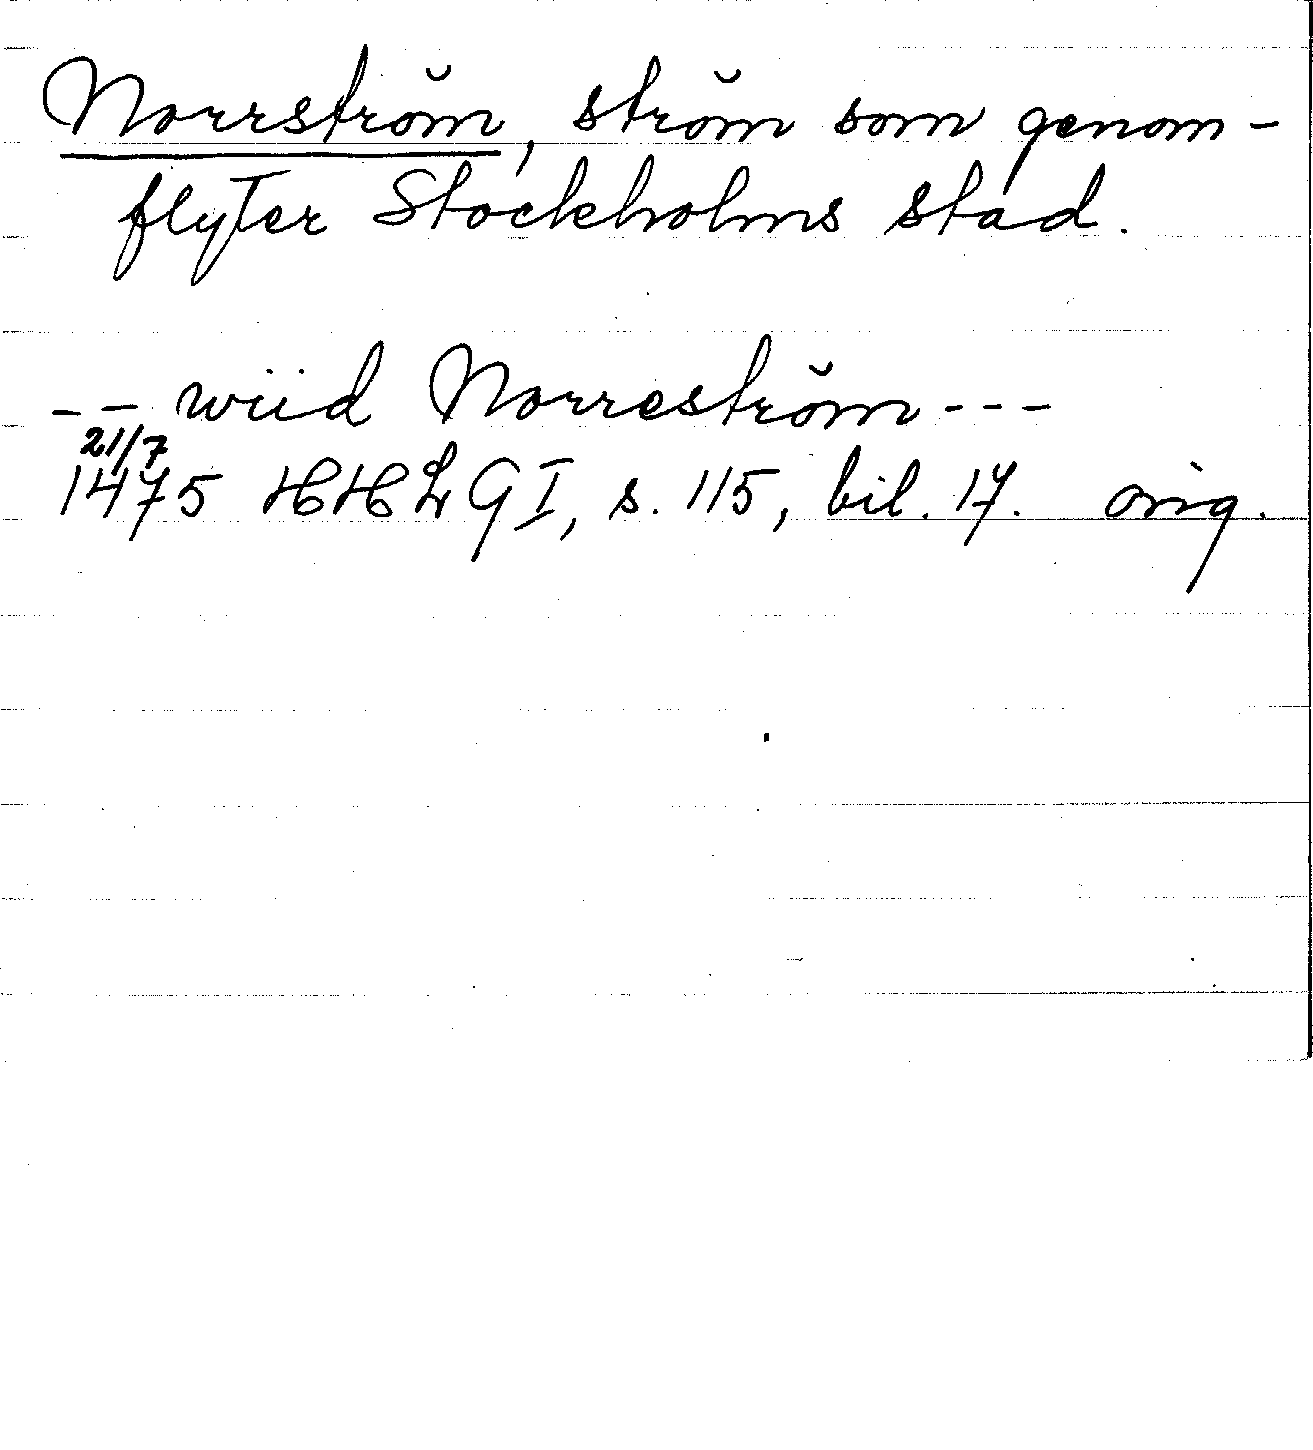 Norrström, ström som genom-
flyter Stockholms stad.
-- wiid Norreström---
21/7
1475 HHLG I, s. 115, bil. 17. orig.